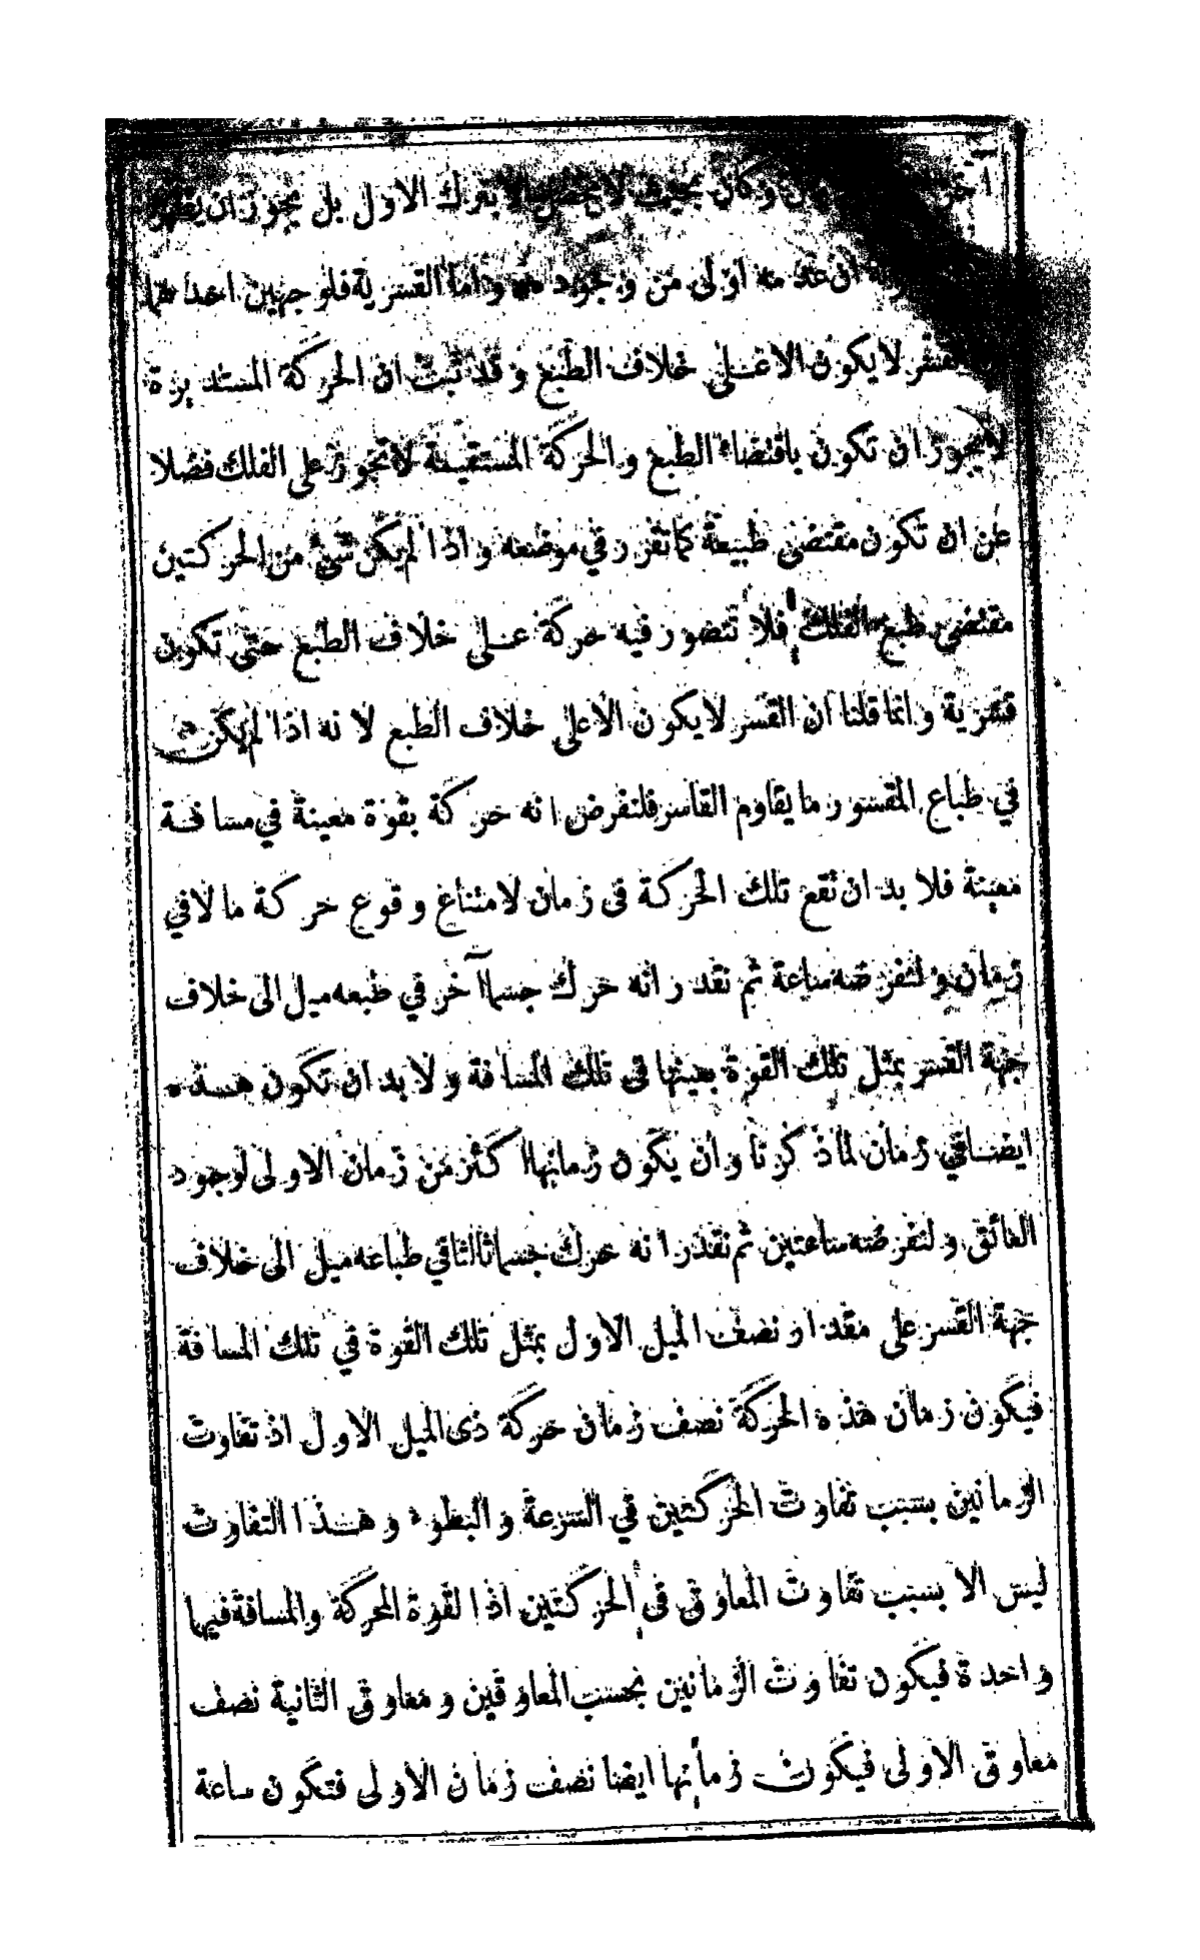 آخر وكان بحيث لا يحصل الا بترك الاول بل يجوز ان يظهر
ان عدمه اولى من وجوده واما القسرية فلوجهين احدهما
القسر لا يكون الا على خلاف الطبع وقد ثبت ان الحركة المستديرة
لا يجوز ان تكون باقتضاء الطبع والحركة المستقيمة لا تجوز على الفلك فضلا
عن ان تكون مقتضى طبيعة كما تقرر في موضعه واذا لم يكن شئ من الحركتين
مقتضى طبع الفلك فلا تتصور فيه حركة على خلاف الطبع حتى تكون
قسرية وانما قلنا ان القسر لا يكون الا على خلاف الطبع لا نه اذا لم يكن
في طباع المقسور ما يقاوم القاسر فلنفرض انه حركة بقوة معينة في مسافة
معينة فلا بد ان تقع تلك الحركة فى زمان لامتناع وقوع حركة ما لا في
زمان ولنفرضه ساعة ثم نقدر انه حرك جسما آخر في طبعه ميل الى خلاف
جهة القسر بمثل تلك القوة بعينها فى تلك المسافة ولا بد ان تكون هذه
ايضا في زمان لما ذكرنا وان يكون زمانها اكثر من زمان الاولى لوجود
العائق ولنفرضه ساعتين ثم نقدر انه حرك جسما ثالثا في طباعه ميل الى خلاف
جهة القسر على مقدار نصف الميل الاول بمثل تلك القوة في تلك المسافة
فيكون زمان هذه الحركة نصف زمان حركة ذى الميل الاول اذ تفاوت
الزمانين بسبب تفاوت الحركتين في السرعة والبطوء وهذا التفاوت
ليس الا بسبب تفاوت المعاوق فى الحركتين اذا لقوة المحركة والمسافة فيها
واحدة فيكون تفاوت الزمانين بحسب المعاوقين ومعاوق الثانية نصف
معاوق الاولى فيكون زمانها ايضا نصف زمان الاولى فتكون ساعة